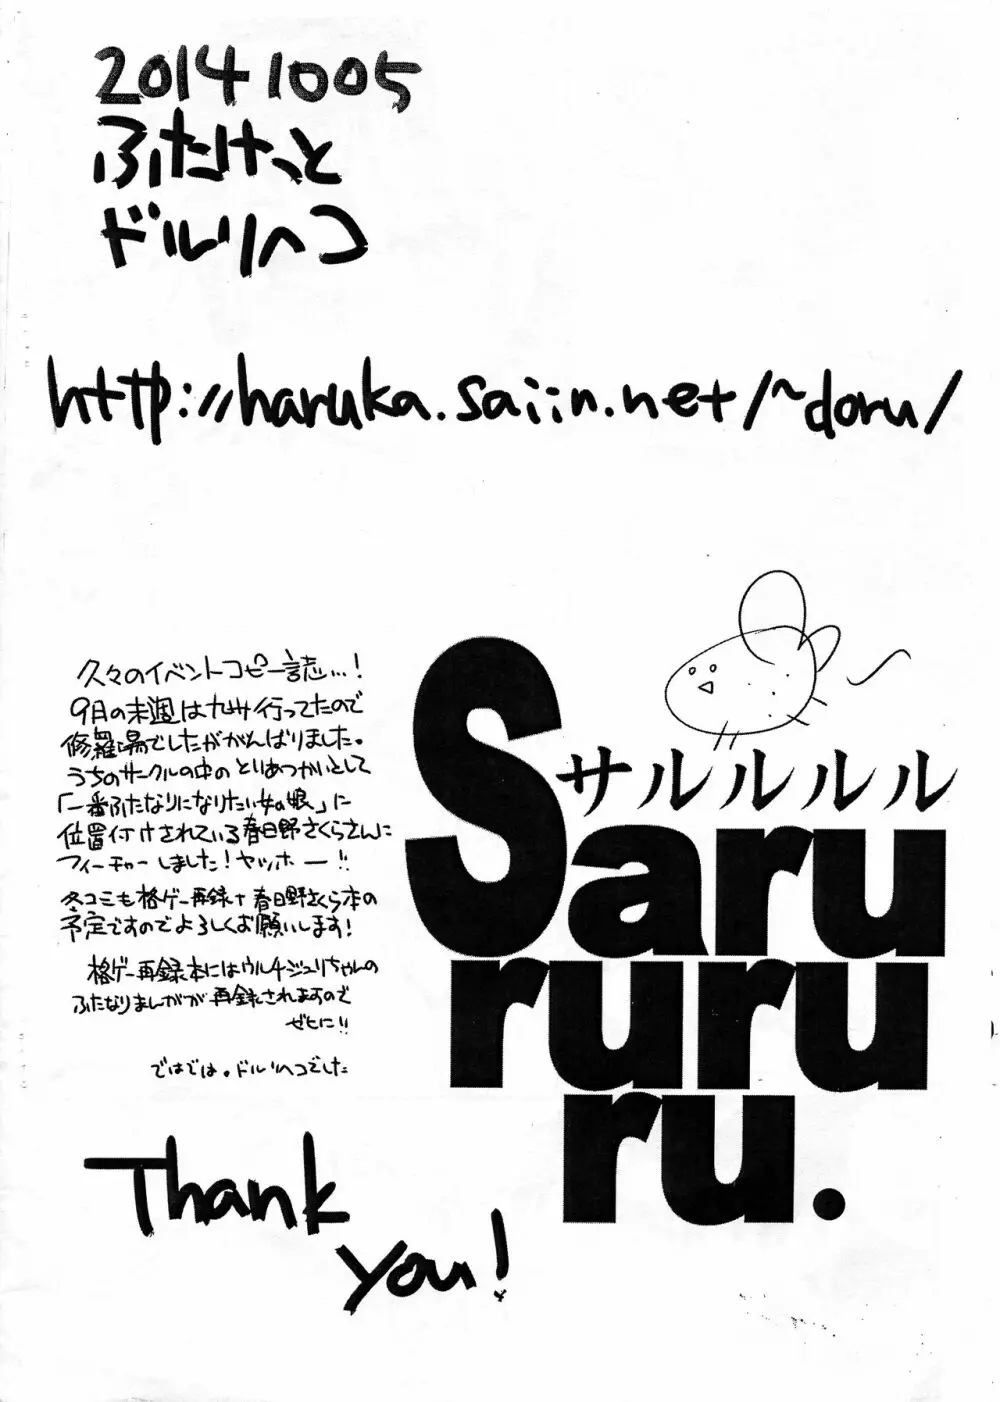 20141005
ふたけっと
ドルリヘコ
http://haruka.saiin.net/~doru/
久々のイベントコピー誌…!
9日の末週は九州行ってたので
修羅場でしたががんばりました。
うちのサークルの中のとりあつかいとして
「一番ふたなりになりたい女の娘」に
位置付けされている春日野さくらさんに
フィーチャーしました!ヤッホー!!
冬コミも格ゲー再録+春日野さくら本の
予定ですのでよろしくお願いします!
格ゲー再録本にはウルチジュリちゃんの
ふたなりまんがが再録されますので
ぜひに!!
ではでは。ドルリヘコでした
サルルルル
Saru
ruru
ru.
Thank
you!